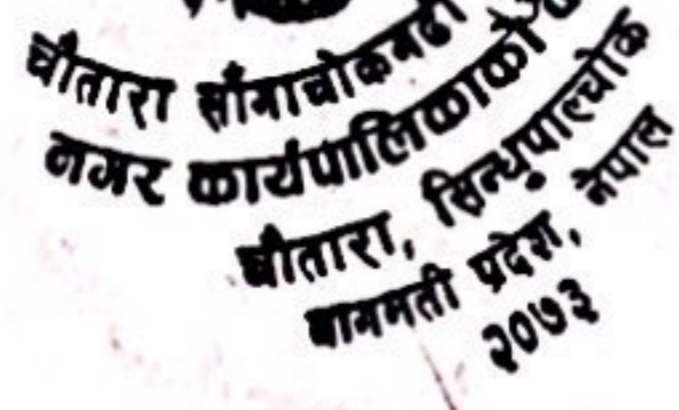 चौतारा साँगाचोकगढी
नगर कार्यपालिकाको
चौतारा, सिन्धुपाल्चोक
बागमती प्रदेश, नेपाल
२०७३